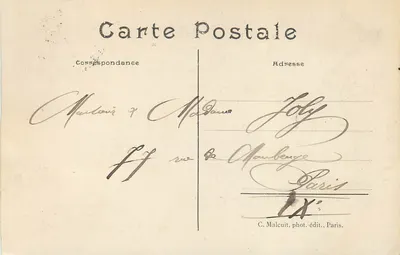 Carte Postale
Correspondance
Adresse
Monsieur & Madame Joly
77 rue de Maubeuge
Paris
IXe
C. Malcuit, phot. édit., Paris.